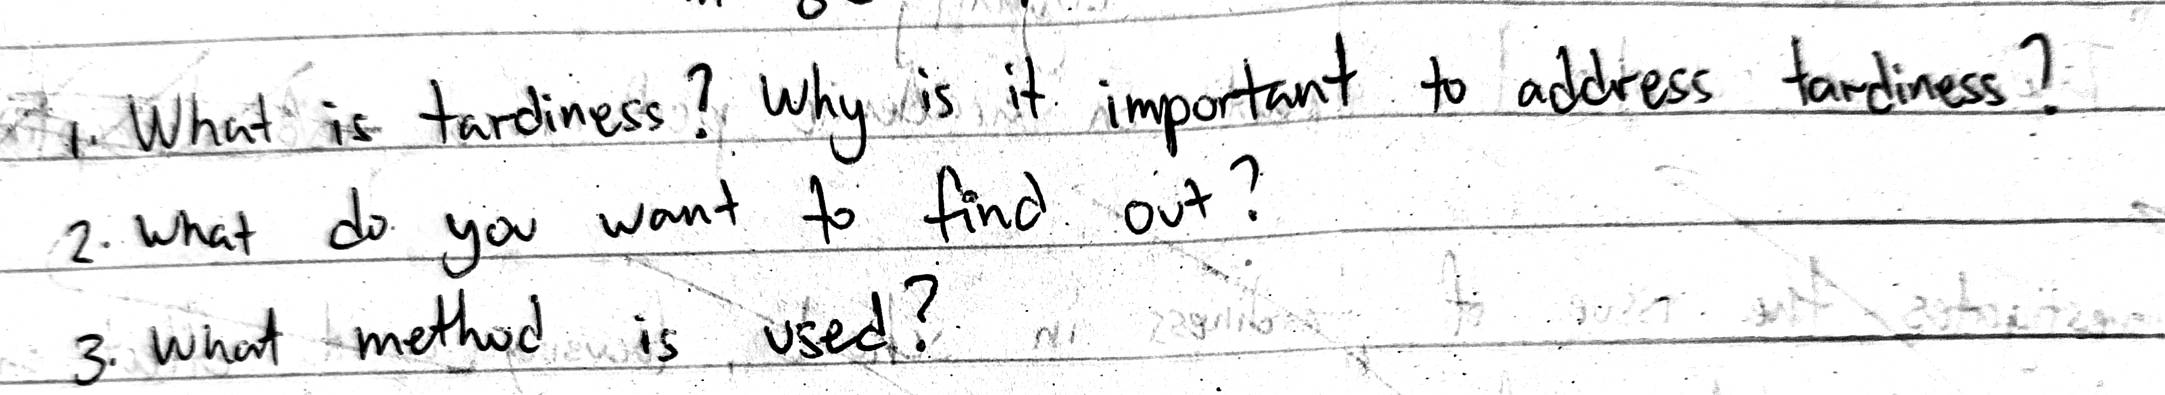 1. What is tardiness? Why is it important to address tardiness?
2. What do you want to find out?
3. What method is used?